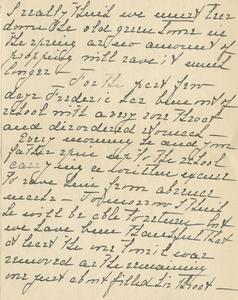 I really think we must tear
down the old green house in
the spring as no amount of
propping will save it much
longer —
— For the past few
days Frederic has been out of
school with a very sore throat
and disordered stomach —
Every morning he and your
father spin up to the school
carrying a written excuse
to save him from absence
marks — Tomorrow I think
he will be able to return but
we have been thankful that
at least the one tonsil was
removed as the remaining
one just about filled his throat —